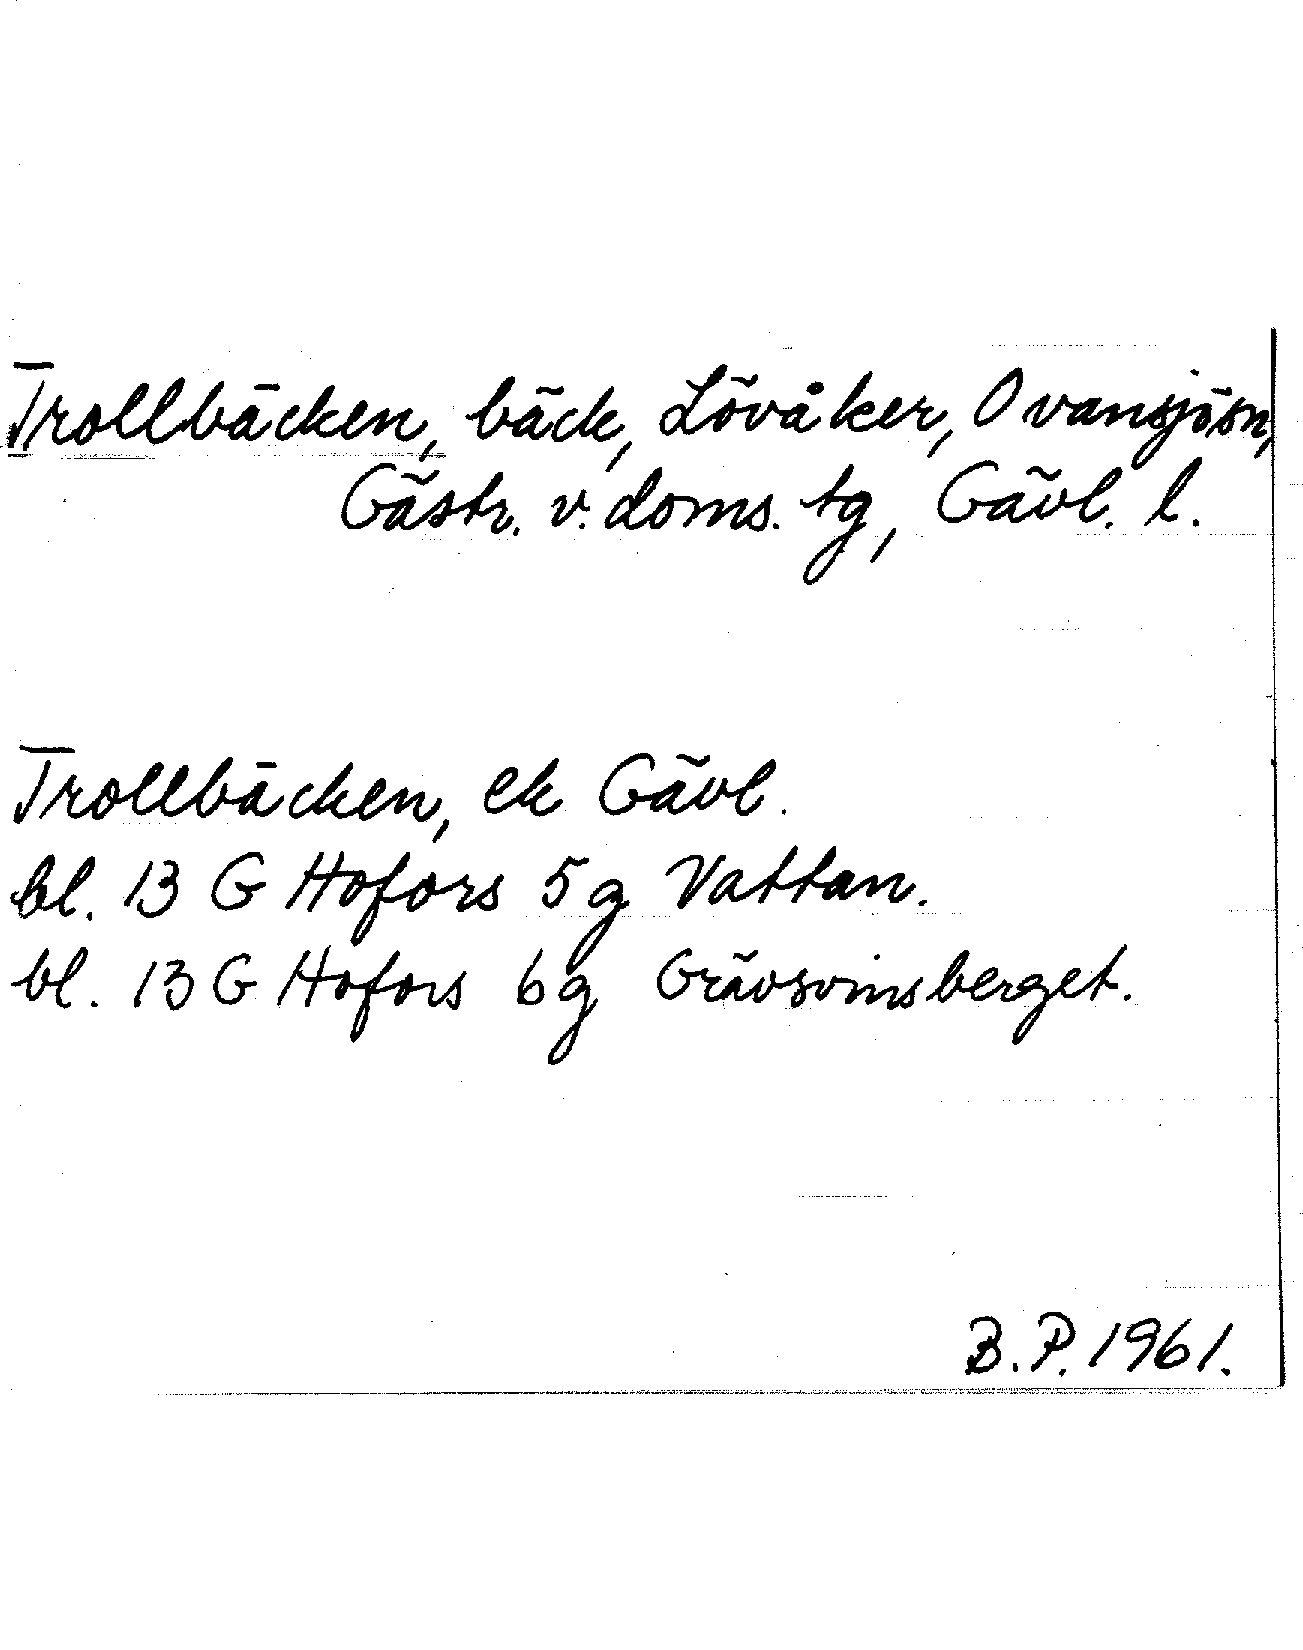 Trollbäcken, bäck, Lövåker, Ovansjösn,
Gästr. v. doms. tg, Gävl. l.
Trollbäcken, ek Gävl.
bl. 13 G Hofors 5 g Vattan.
bl. 13 G Hofors 6 g Grävsvinsberget.
B.P. 1961.